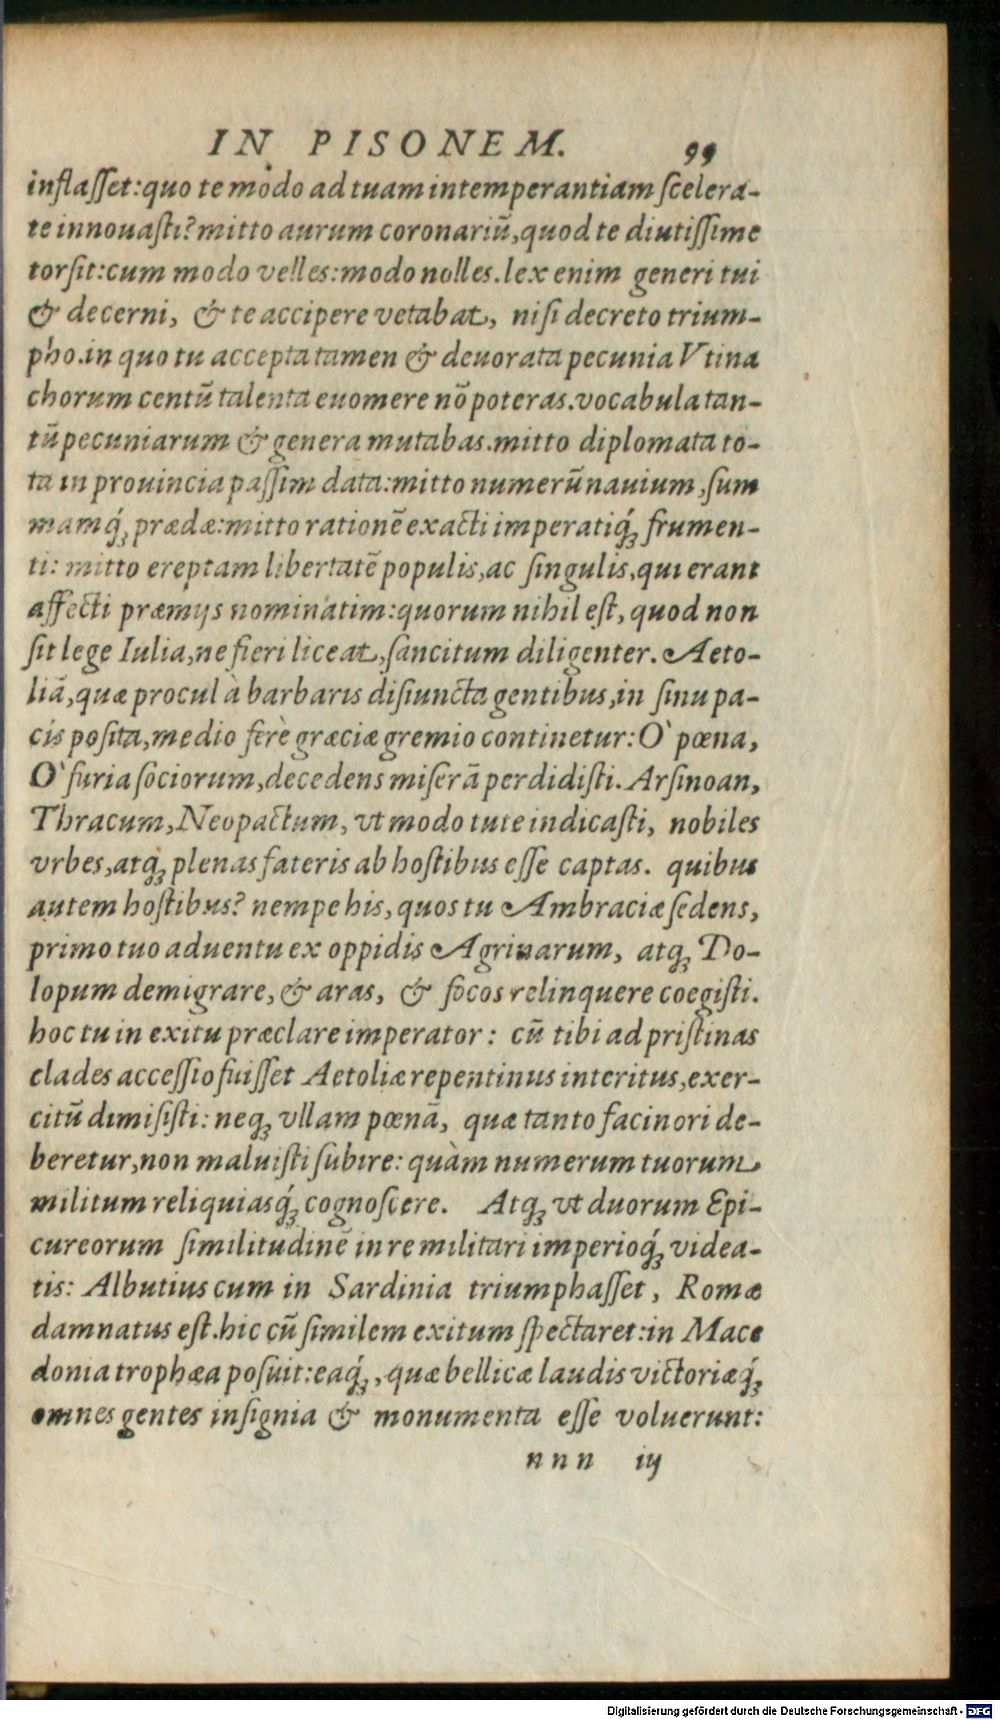 IN PISONEM. 99
inflaſſet: quo te modo ad tuam intemperantiam ſcelera-
te innouaſti? mitto aurum coronariũ, quod te diutiſſime
torſit: cum modo velles: modo nolles. lex enim generi tui
& decerni, & te accipere vetabat, niſi decreto trium-
pho. in quo tu accepta tamen & deuorata pecunia Vtina
chorum centũ talenta euomere nõ poteras. vocabula tan-
tũ pecuniarum & genera mutabas. mitto diplomata to-
ta in prouincia paſſim data: mitto numerũ nauium, ſum
mamq́; prædæ: mitto rationẽ exacti imperatiq́; frumen-
ti: mitto ereptam libertatẽ populis, ac ſingulis, qui erant
affecti præmijs nominatim: quorum nihil eſt, quod non
ſit lege Iulia, ne fieri liceat, ſancitum diligenter. Aeto-
liã, quæ procul à barbaris diſiuncta gentibus, in ſinu pa-
cis poſita, medio ferè græciæ gremio continetur: O` pœna,
O` furia ſociorum, decedens miſerã perdidiſti. Arſinoan,
Thracum, Neopactum, vt modo tute indicaſti, nobiles
vrbes, atq; plenas fateris ab hoſtibus eſſe captas. quibus
autem hoſtibus? nempe his, quos tu Ambraciæ ſedens,
primo tuo aduentu ex oppidis Agrinarum, atq; Do-
lopum demigrare, & aras, & focos relinquere coegiſti.
hoc tu in exitu præclare imperator: cũ tibi ad priſtinas
clades acceſſio fuiſſet Aetoliæ repentinus interitus, exer-
citũ dimiſiſti: neq; vllam pœnã, quæ tanto facinori de-
beretur, non maluiſti ſubire: quàm numerum tuorum
militum reliquiasq́; cognoſcere. Atq; vt duorum Epi-
cureorum ſimilitudinẽ in re militari imperioq́; videa-
tis: Albutius cum in Sardinia triumphaſſet, Romæ
damnatus eſt. hic cũ ſimilem exitum ſpectaret: in Mace
donia trophæa poſuit: eaq́;, quæ bellicæ laudis victoriæq́;
omnes gentes inſignia & monumenta eſſe voluerunt:
nnn iij
Digitalisierung gefördert durch die Deutsche Forschungsgemeinschaft - DFG